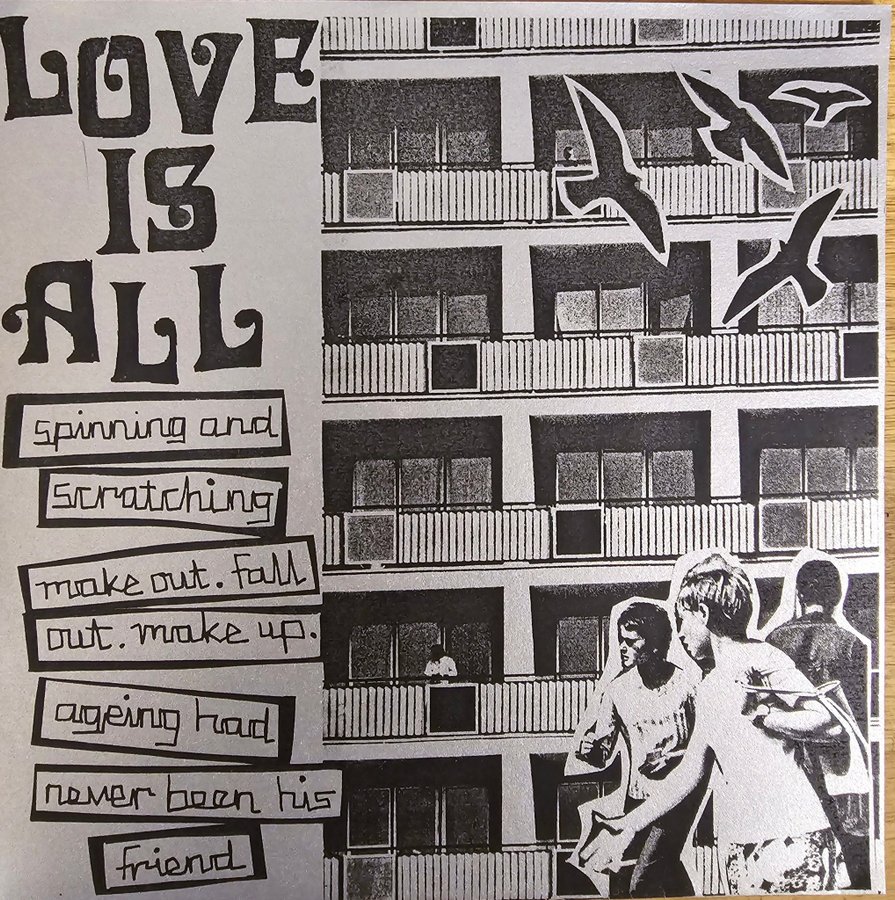 LOVE
IS
ALL
spinning and
scratching
make out. fall
out. make up.
ageing had
never been his
friend